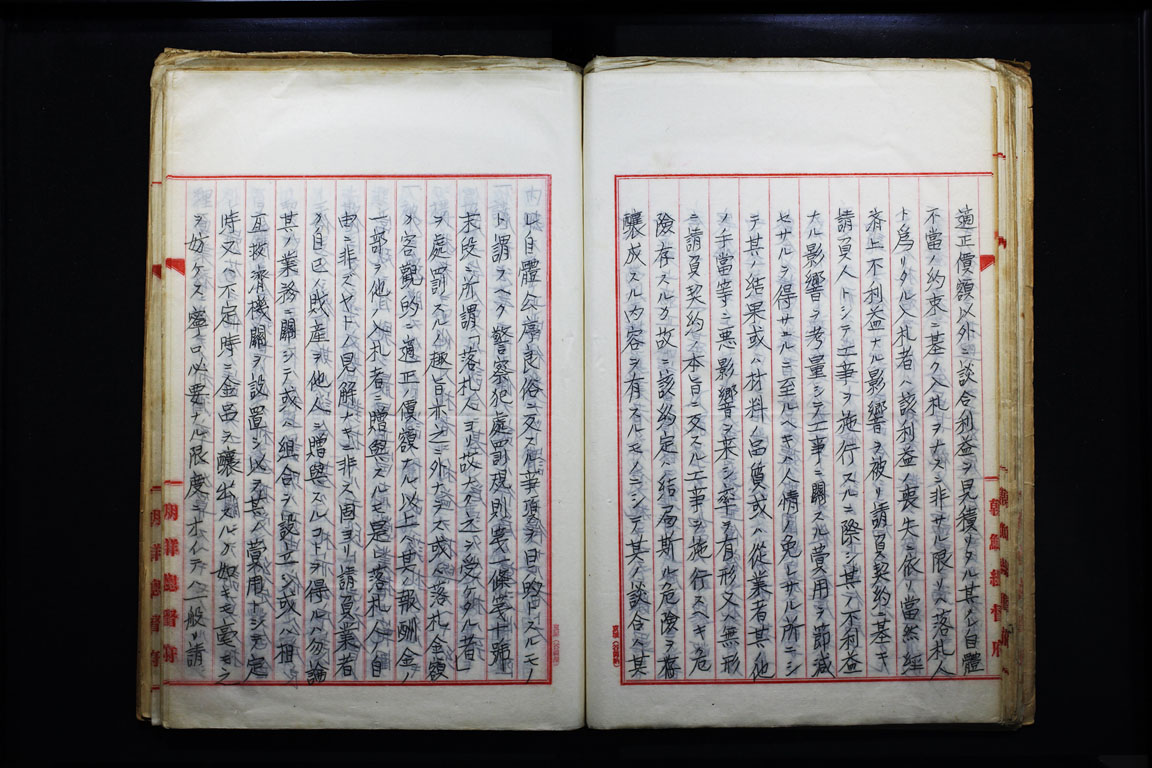 適正價額以外ニ談合利益ヲ見積リタル其レ自體
不當ノ約束ニ基ク入札ヲナスニ非サル限リハ落札人
ト爲リタル入札者ハ該利益ノ喪失ニ依リ當然經
濟上不利益ナル影響ヲ被リ請負契約ニ基キ
請負人トシテ工事ヲ施行スルニ際シ其ノ不利益
ナル影響ヲ考量シテ工事ニ關スル費用ヲ節減
セサルヲ得サルニ至ルヘキハ人情ノ免レサル所ニシ
テ其ノ結果或ハ材料ノ品質或ハ從業者其ノ他
ノ手當等ニ惡影響ヲ來シ率ヰ有形又ハ無形
ニ請負契約ノ本旨ニ反スル工事ヲ施行スヘキ危
險存スルカ故ニ該約定ハ結局斯ル危險ヲ
釀成スル内容ヲ有スルモノニシテ其ノ談合ハ其
レ自體公序良俗ニ反スル事項ヲ目的トスルモノ
ト謂フヘク警察犯處罰規則第一條第十號
末段ニ所謂「落札人ヨリ故ナク之ヲ受ケタル者」
ヲ處罰スルノ趣旨亦之ニ外ナラス或ハ落札金額
カ客觀的ニ適正ノ價額ナル以上ハ其報酬金ノ
一部ヲ他ノ入札者ニ贈與スルモ是レ落札人ノ自
由ニ非スヤトノ見解ナキニ非ス固ヨリ請負業者
カ自己ノ財産ヲ他人ニ贈與スルコトヲ得ルハ勿論
其ノ業務ニ關シテ或ハ組合ヲ設立シ或ハ相
互救濟機關ヲ設置シ以テ其ノ費用トシテ定
時又ハ不定時ニ金品ヲ釀出スルカ如キモ毫モ之
ヲ妨ケス寧ロ必要ナル限度ニ於イテハ一般ノ請
朝鮮總督府
朝鮮總督府